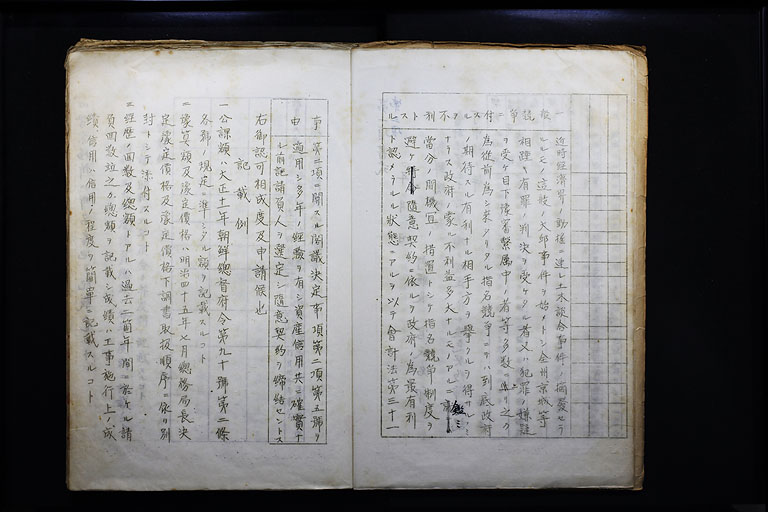 近時経済界ノ動揺ニ連レ土木談合事件ノ摘發セラ
ルルモノ ノ大邱事件ヲ始メトシ全州京城等
相踵キ有罪ノ判決ヲ受ケタル者又ハ犯罪ノ嫌疑
ヲ受ケ目下豫審繋属中ノ者等多数ニ上リ之カ
為従前為シ来タリタル指名競争ニテハ到底政府
ノ期待スル有利ナル相手方ヲ擧クルヲ得サルノミ
ナラス政府ノ蒙ル不利益多大ナルモノアルニ鑑ミ
當分ノ間機宜ノ措置トシテ指名競争制度ヲ
避ケ随意契約ニ依ルヲ政府ノ為最有利
ト認メラルル状態ニアルヲ以テ會計法第三十一
事 第二項ニ關スル閣議決定事項第二項第五號ヲ
由 適用シ多年ノ経驗ヲ有シ資産信用共ニ確實ナ
ル前記請負人ヲ選定シ随意契約ヲ締結セントス
右御認可相成度及申請候也
記載例
一公課額ハ大正十一年朝鮮總督府令第九十號第二條
各號ノ規定ニ準シタル額ヲ記載スルコト
二豫算額及豫定價格ハ明治四十五年七月總務局長決
定豫定價格及豫定價格下調書取扱順序ニ依リ別
封トシテ添付スルコト
三経歴ノ回数及總額トアルハ過去二箇年間ニ於ケル請
負回数竝之カ總額ヲ記載シ成績ハ工事施行上ノ成
績信用ハ信用ノ程度ヲ簡單ニ記載スルコト